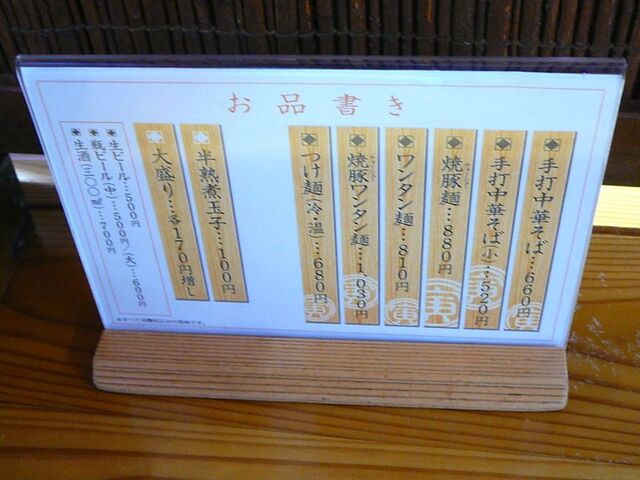 お品書き
手打中華そば…660円
手打中華そば(小)…520円
焼豚麺…880円
ワンタン麺…810円
焼豚ワンタン麺…1,030円
つけ麺(冷・温)…680円
半熟煮玉子…100円
大盛り…各170円増し
生ビール…500円
瓶ビール(中)…500円/(大)…600円
生酒(三〇〇㎖)…700円